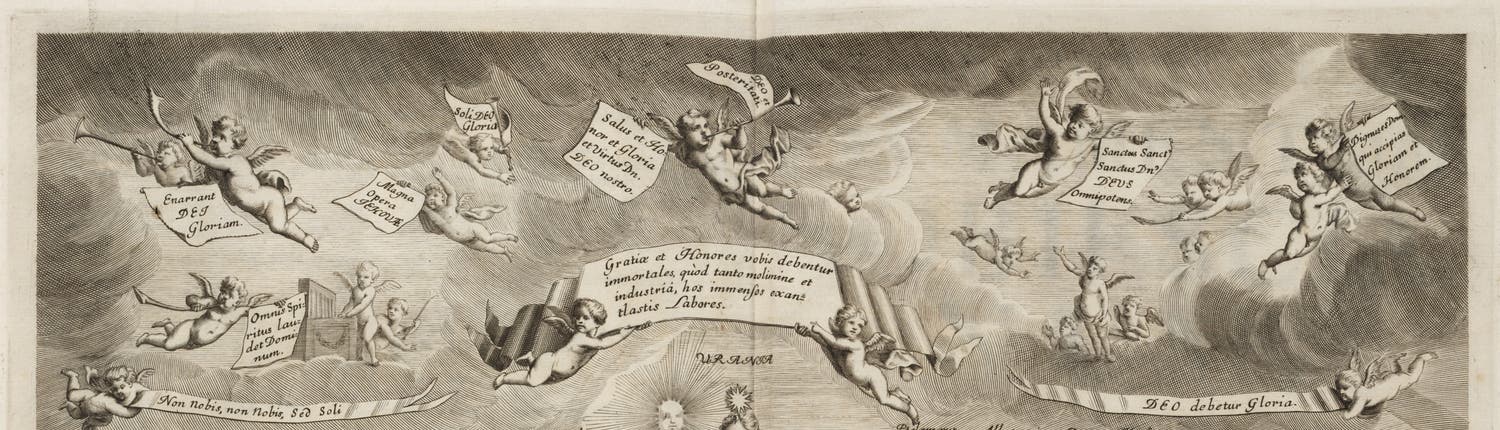 Enarrant
DEI
Gloriam.
Soli DEO
Gloria
Magna
Opera
JEHOVÆ
Salus et Ho,
nor et Gloria
et Virtus Dn.
DEO nostro.
DEO et
Posteritati.
Sanctus Sanct9
Sanctus Dn9
DEUS
Omnipotens.
Dignus es Dom
qui accipias
Gloriam et
Honorem.
Gratiæ et Honores vobis debentur
immortales, quòd tanto molimine et
industriâ, hos immensos exan=
tlastis Labores.
Omnis Spi-
ritus lau-
det Domi
num.
URANIA
Non nobis, non Nobis, Sed Soli
DEO debetur Gloria.